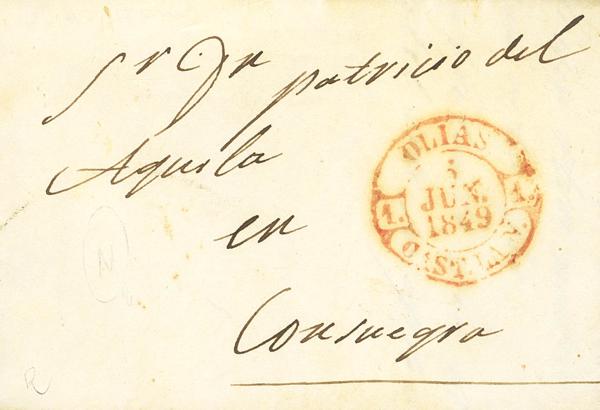 Sr Dn patricio del
Aquila
en
Consuegra
OLIAS
5
JUN.
1849
1. 1.
CAST. LA N.